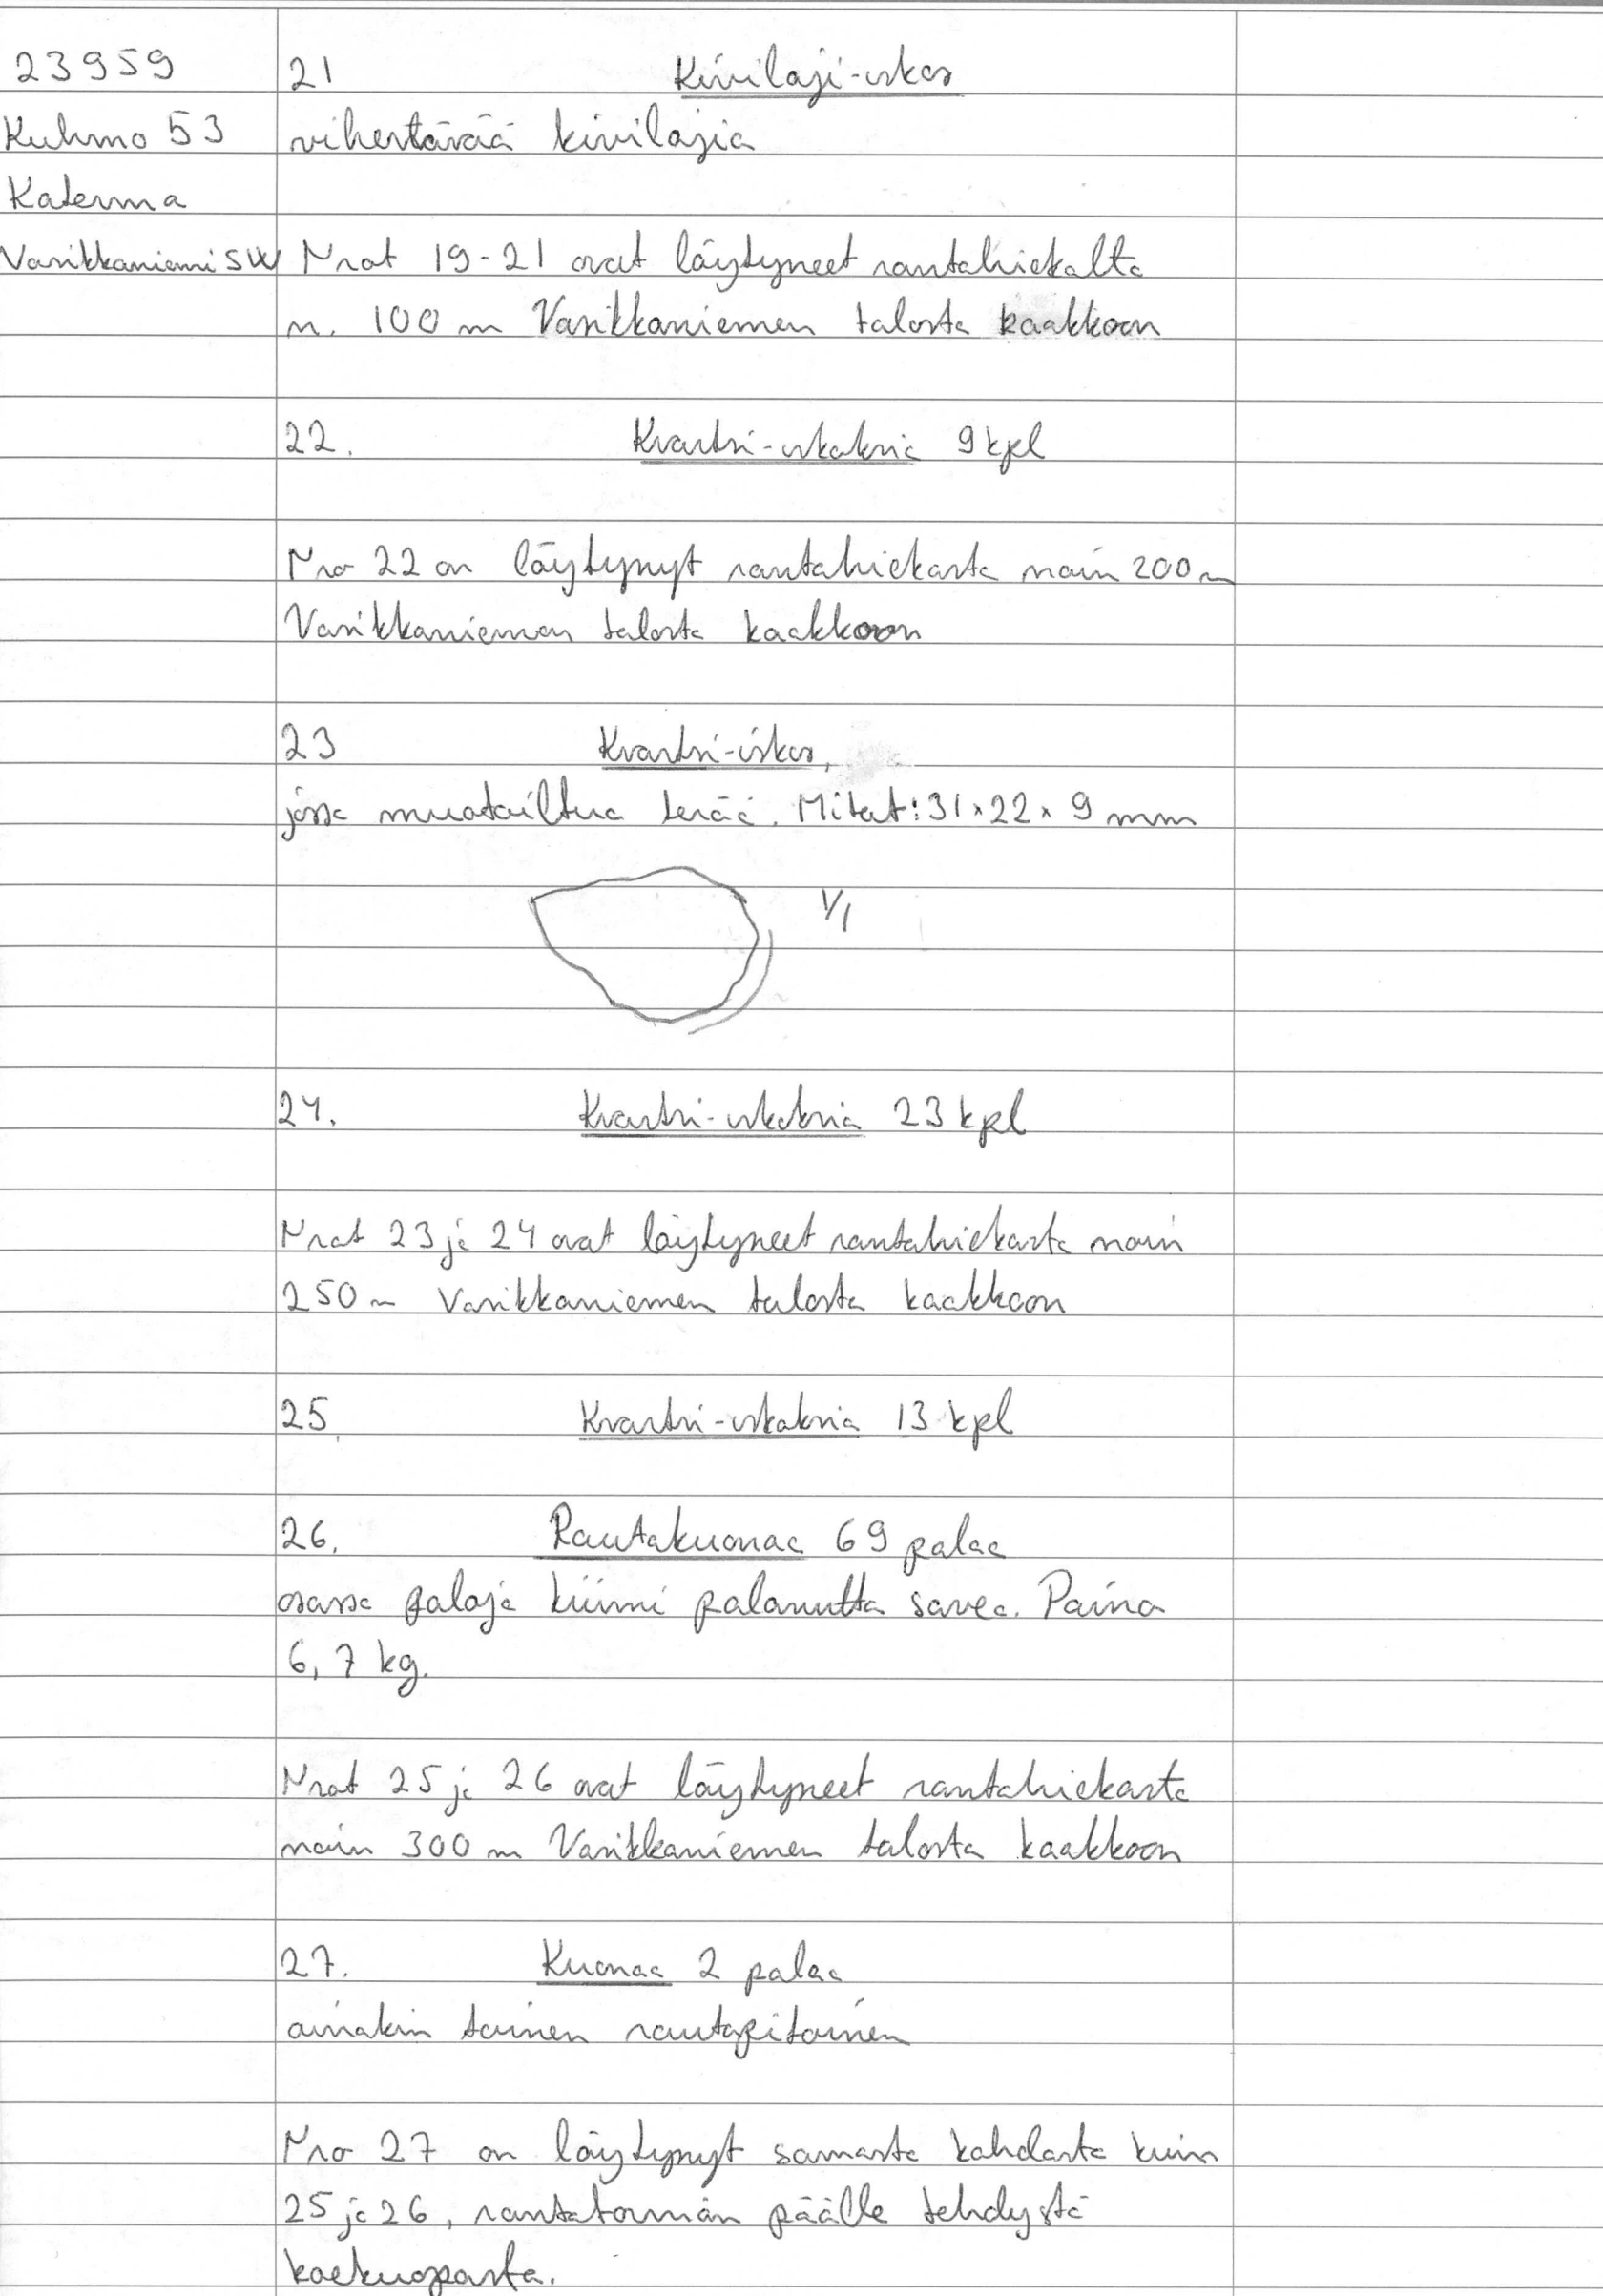 23959
Kuhmo 53
Katerma
Vasikkaniemi SW
21 Kivilaji-iskos
vihertävää kivilajia
Nrot 19-21 ovat löytyneet rantahiekalta
n. 100 m Vasikkaniemen talosta kaakkoon
22. Kvartsi-iskoksia 9 kpl
Nro 22 on löytynyt rantahiekasta noin 200 m
Vasikkaniemen talosta kaakkoon
23 Kvartsi-iskos,
jossa muotoiltua terää. Mitat: 31 x 22 x 9 mm
1/1
24. Kvartsi-iskoksia 23 kpl
Nrot 23 ja 24 ovat löytyneet rantahiekasta noin
250 m Vasikkaniemen talosta kaakkoon
25. Kvartsi-iskoksia 13 kpl
26. Rautakuonaa 69 palaa
osassa paloja kiinni palanutta savea. Paino
6,7 kg.
Nrot 25 ja 26 ovat löytyneet rantahiekasta
noin 300 m Vasikkaniemen talosta kaakkoon
27. Kuonaa 2 palaa
ainakin toinen rautapitoinen
Nro 27 on löytynyt samasta kohdasta kuin
25 ja 26, rantatörmän päälle tehdystä
koekuopasta.